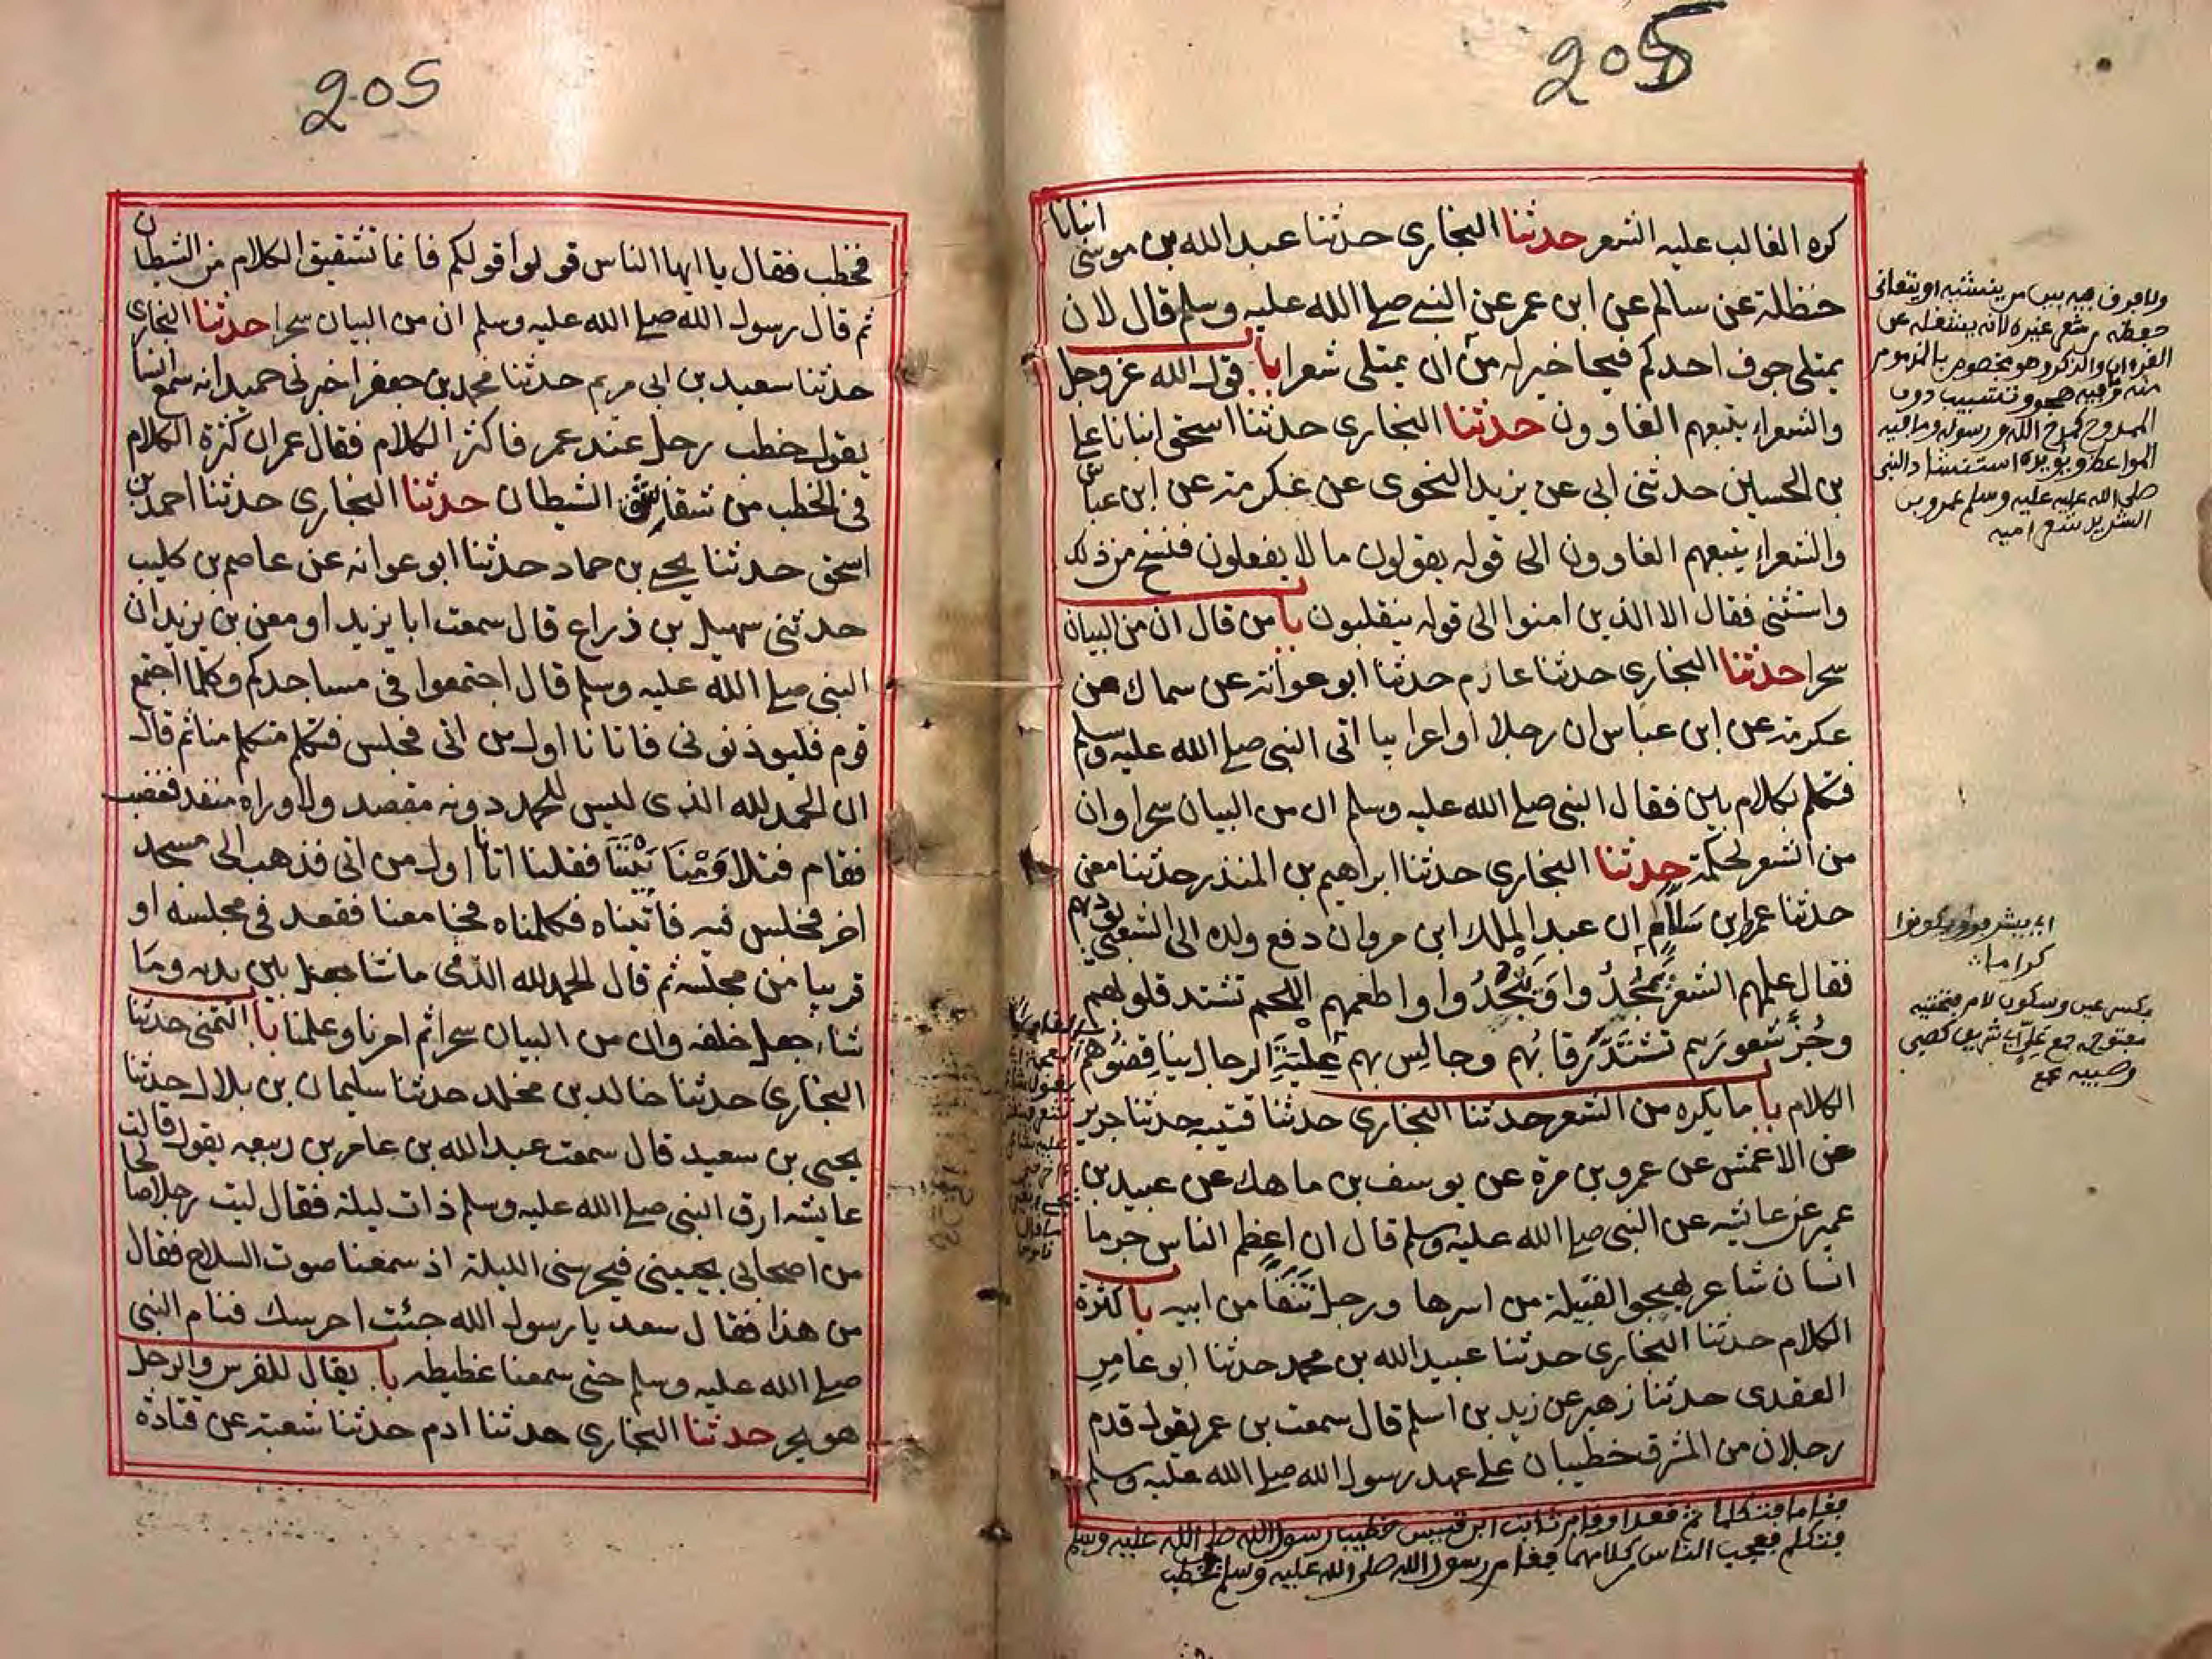 205
كره الغالب عليه الشعر حدثنا البخاري حدثنا عبد الله بن موسى انبانا
حنظلة عن سالم عن ابن عمر عن النبي صلى الله عليه وسلم قال لان
يمتلى جوف احدكم قيحا خير له من ان يمتلى شعرا با قول الله عز وجل
والشعراء يتبعهم الغاوون حدثنا البخاري حدثنا اسحق انبانا على
بن الحسين حدثنى ابى عن يزيد النحوى عن عكرمة عن ابن عباس
والشعراء يتبعهم الغاوون الى قوله يقولون ما لا يفعلون فنسخ من ذلك
واستثنى فقال الا الذين امنوا الى قوله ينقلبون با من قال ان من البيان
سحرا حدثنا البخاري حدثنا عارم حدثنا ابو عوانة عن سماك عن
عكرمة عن ابن عباس ان رجلا او اعرابيا اتى النبي صلى الله عليه وسلم
فتكلم بكلام بين فقال النبي صلى الله عليه وسلم ان من البيان سحرا وان
من الشعر لحكمة حدثنا البخاري حدثنا ابراهيم بن المنذر حدثنا معن
حدثنا عمر ابن سلام ان عبد الملك ابن مروان دفع ولده الى الشعبي يؤدبهم
فقال علمهم الشعر يمجدوا وينجدوا واطعمهم اللحم تشتد قلوبهم
وجز شعورهم تشتد رقابهم وجالس بهم علية الرجال يناقضوهم
الكلام با ما يكره من الشعر حدثنا البخاري حدثنا قتيبه حدثنا جرير
عن الاعمش عن عمرو بن مرة عن يوسف بن ماهك عن عبيد بن
عمير عن عايشه عن النبي صلى الله عليه وسلم قال ان اعظم الناس جرما
انسان شاعر يهجوا القبيلة من اسرها ورجل تنفا من ابيه با كثرة
الكلام حدثنا البخاري حدثنا عبيد الله بن محمد حدثنا ابو عامر
العقدى حدثنا زهير عن زيد بن اسلم قال سمعت بن عمر يقول قدم
رجلان من المشرق خطيبان على عهد رسول الله صلى الله عليه وسلم
فقاما فتكلما ثم قعدا وقام ثابت ابن قيس خطيب رسول الله صلى الله عليه وسلم
فتكلم فعجب الناس من كلامهما فقام رسول الله صلى الله عليه وسلم يخطب
القرءان والذكر وهو مخصوص بالمذموم
منه وما فيه هجو وتشبيب دون
الممدوح كمدح الله ورسوله وما فيه
المواعظ ويؤيده استنشاد النبي
صلى الله عليه وسلم عمرو بن
الشريد شعر امية
كراما
بكسر عين وسكون لام فتحتيه
205
فخطب فقال يا ايها الناس قولوا قولكم فانما تشقيق الكلام من الشيطان
ثم قال رسول الله صلى الله عليه وسلم ان من البيان سحرا حدثنا البخاري
حدثنا سعيد بن ابى مريم حدثنا محمد بن جعفر اخبرنى حميد انه سمع انسا
يقول خطب رجل عند عمر فاكثر الكلام فقال عمر ان كثرة الكلام
فى الخطب من شقاشق الشيطان حدثنا البخاري حدثنا احمد بن
اسحق حدثنا يحيى بن حماد حدثنا ابو عوانه عن عاصم بن كليب
حدثنى سهيل بن ذراع قال سمعت ابا يزيد او معن بن يزيد ان
النبي صلى الله عليه وسلم قال اجتمعوا فى مساجدكم وكلما اجتمع
قوم فليوذنونى فاتانا اول من اتى فجلس فتكلم متكلم منا ثم قال
ان الحمد لله الذى ليس للحمد دونه مقصد ولا وراه منفد فغضب
فقام فتلاومنا بيننا فقلنا اتانا اول من اتى فذهب الى مسجد
اخر فجلس فيه فاتيناه فكلمناه فجا معنا فقعد فى مجلسه او
قريبا من مجلسه ثم قال الحمد لله الذى ما شا جعل بين يديه وما
شاء جعل خلفه وان من البيان سحرا ثم امرنا وعلمنا با التمنى حدثنا
البخاري حدثنا خالد بن مخلد حدثنا سليمان بن بلال حدثنا
يحيى بن سعيد قال سمعت عبد الله بن عامر بن ربيعه يقول قالت
عايشه ارق النبي صلى الله عليه وسلم ذات ليلة فقال ليت رجلا صالحا
من اصحابى يجيينى فيحرسنى الليلة اذ سمعنا صوت السلاح فقال
من هذا فقال سعد يا رسول الله جئت احرسك فنام النبي
صلى الله عليه وسلم حتى سمعنا غطيطه با يقال للفرس والرجل
هو بحر حدثنا البخاري حدثنا ادم حدثنا شعبة عن قتادة